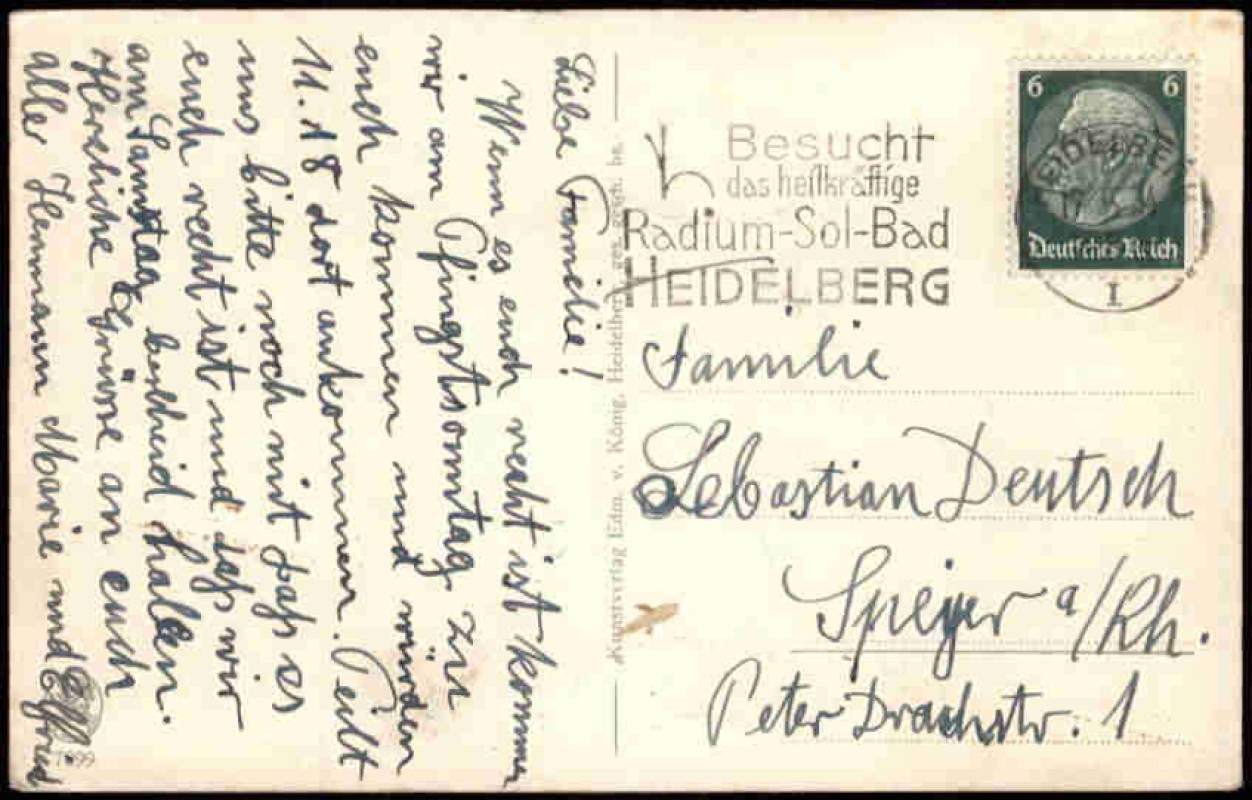 Liebe Familie!
Wenn es euch recht ist kommen
wir am Pfingstsonntag zu
euch kommen und würden
11.18 dort ankommen. Teilt
uns bitte noch mit daß es
euch recht ist und daß wir
am Samstag bescheid haben.
Herzliche Grüsse an euch
aller Hermann Marie und
Kunstverlag Edm. v. König, Heidelberg
Besucht
das heilkräftige
Radium-Sol-Bad
HEIDELBERG
6 6
HEIDELBE
Deutsches Reich
I
Familie
Sebastian Deutsch
Speyer a/Rh.
Peter Drachstr. 1